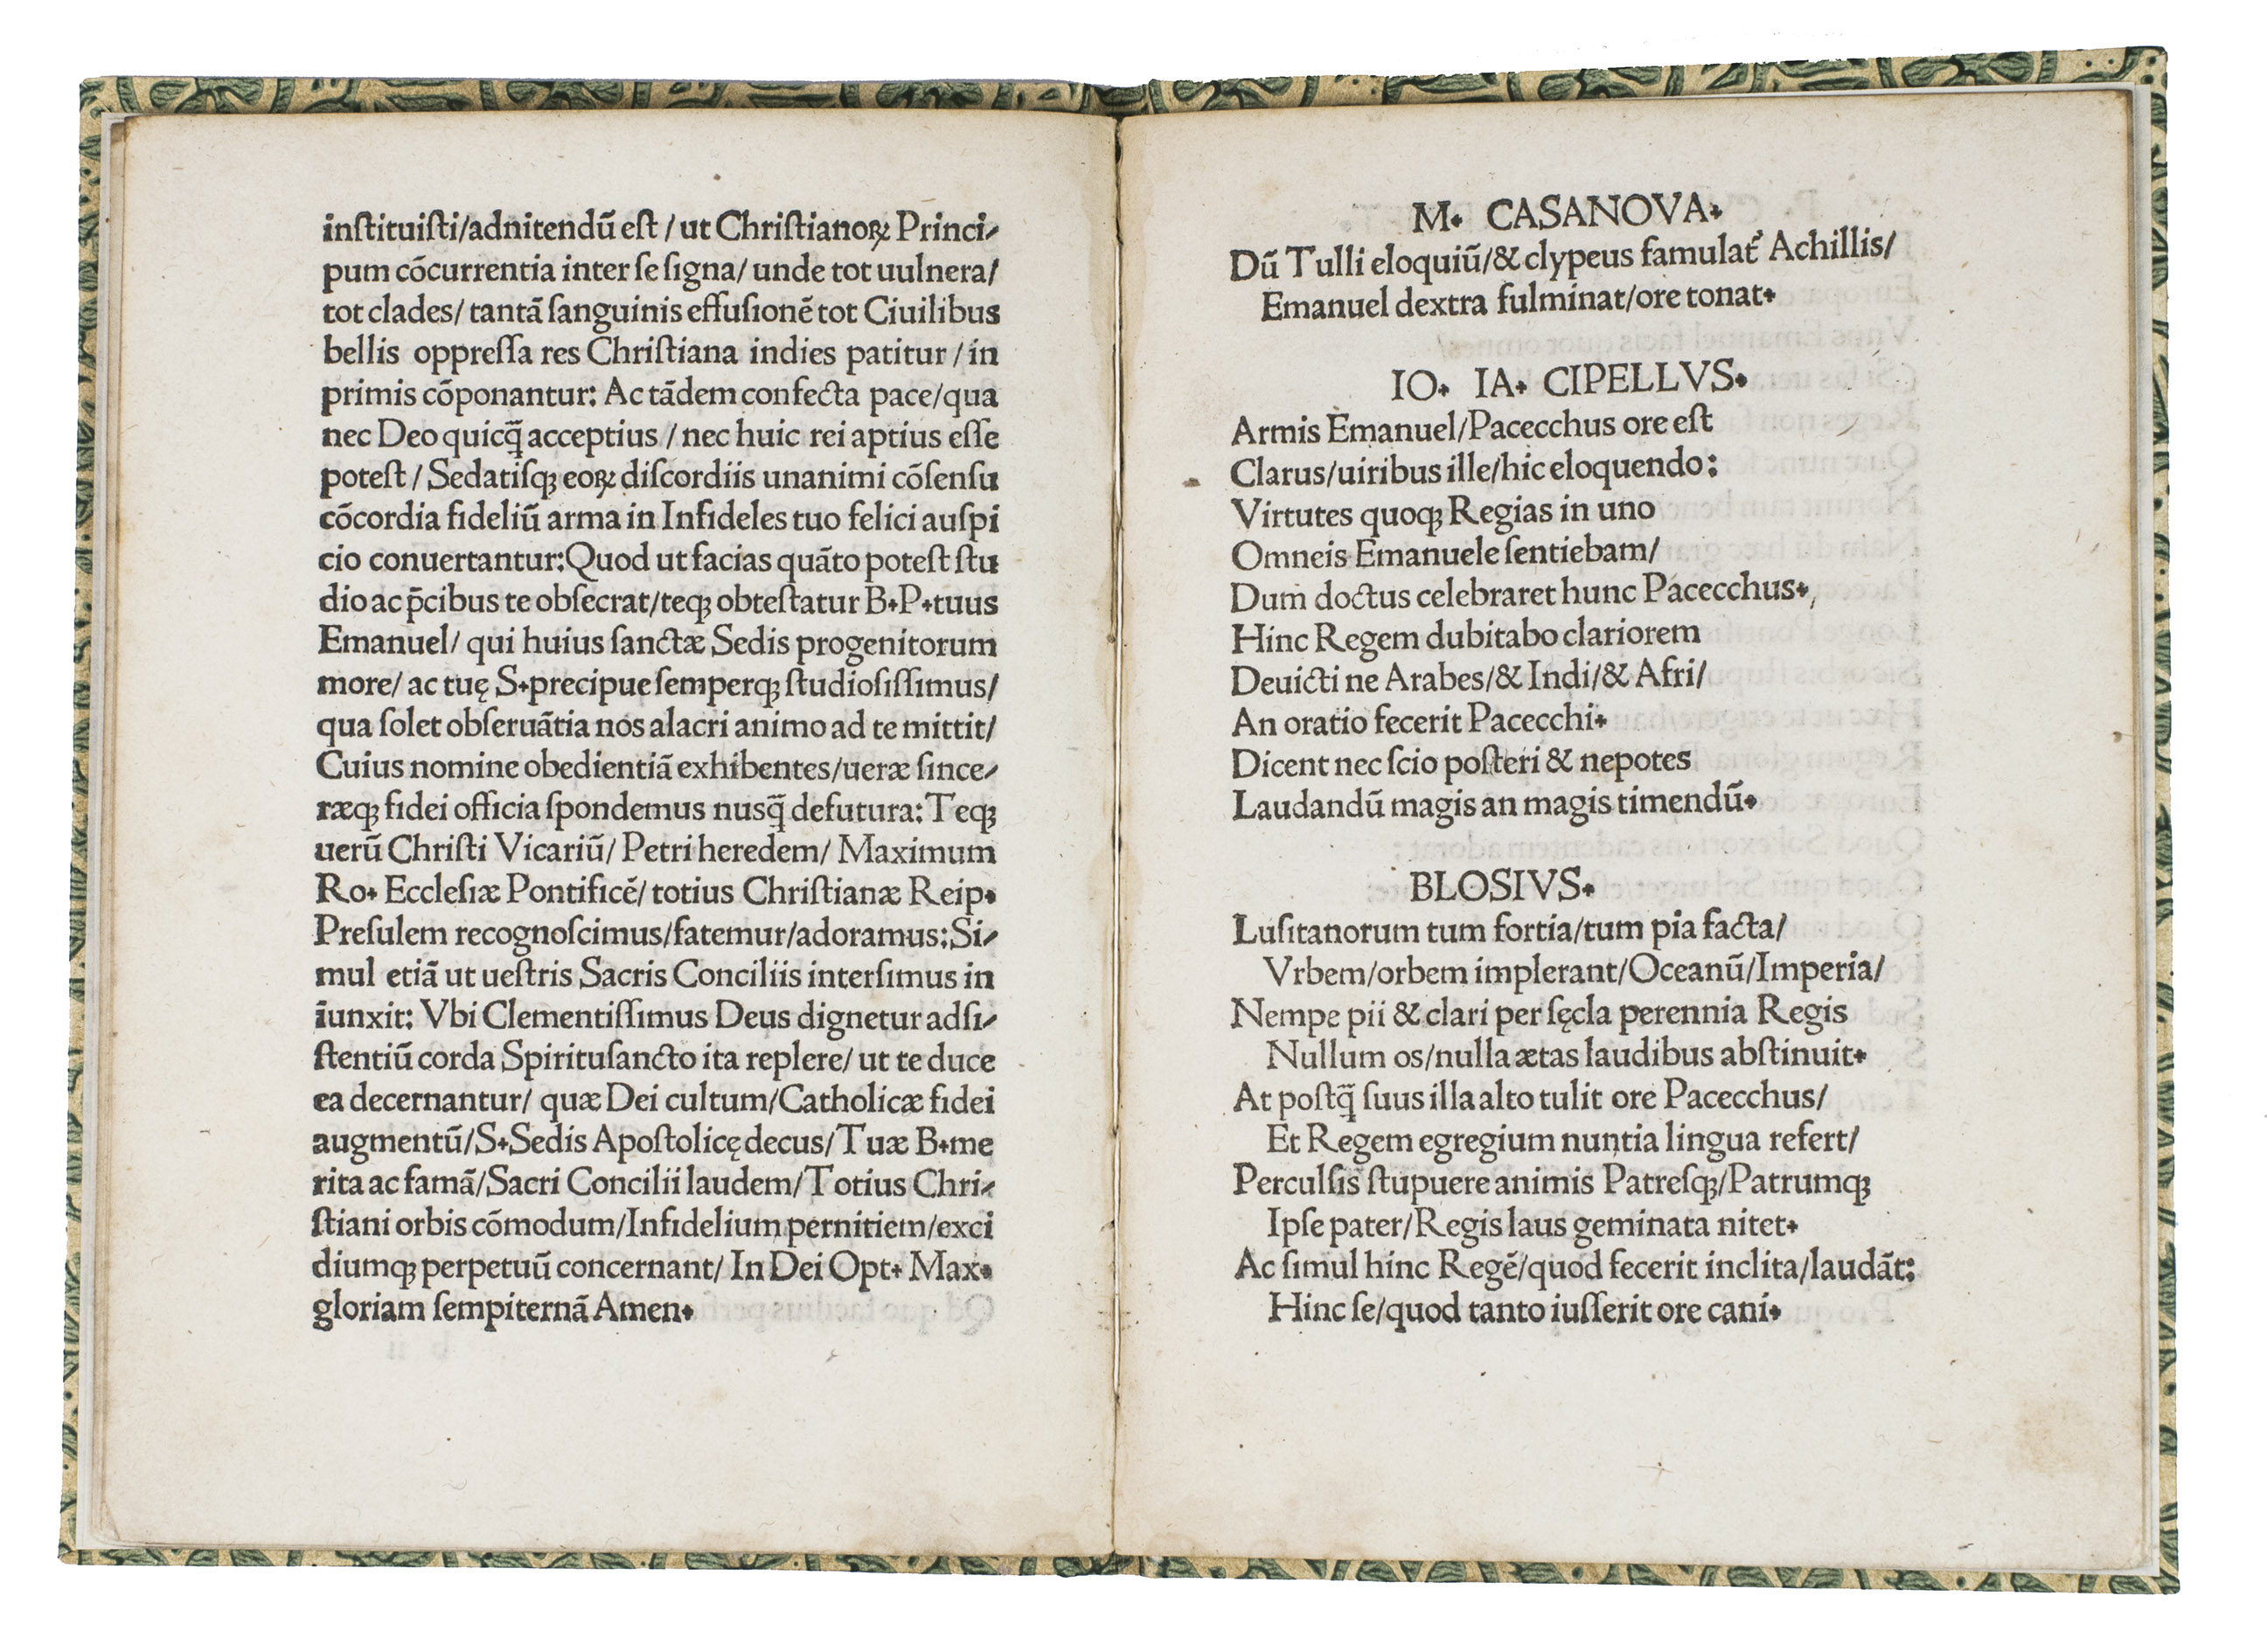 inſtituiſti/adnitendū eſt / ut Chriſtianoꝝ Princi⸗
pum cōcurrentia inter ſe ſigna/ unde tot uulnera/
tot clades/ tantā ſanguinis effuſionē tot Ciuilibus
bellis oppreſſa res Chriſtiana indies patitur / in
primis cōponantur: Ac tādem confecta pace/qua
nec Deo quicq̄ acceptius / nec huic rei aptius eſſe
poteſt / Sedatiſqꝫ eoꝝ diſcordiis unanimi cōſenſu
cōcordia fideliū arma in Infideles tuo felici auſpi
cio conuertantur:Quod ut facias quāto poteſt ſtu
dio ac p̄cibus te obſecrat/teqꝫ obteſtatur B.P.tuus
Emanuel/ qui huius ſanctæ Sedis progenitorum
more/ ac tuę S.precipue ſemperqꝫ ſtudioſiſſimus/
qua ſolet obſeruātia nos alacri animo ad te mittit/
Cuius nomine obedientiā exhibentes/ueræ ſince⸗
ræqꝫ fidei officia ſpondemus nusq̄ defutura: Teqꝫ
uerū Chriſti Vicariū/ Petri heredem/ Maximum
Ro. Eccleſiæ Pontificē/ totius Chriſtianæ Reip.
Preſulem recognoſcimus/fatemur/adoramus:Si⸗
mul etiā ut ueſtris Sacris Conciliis interſimus in
iunxit: Vbi Clementiſſimus Deus dignetur adſi⸗
ſtentiū corda Spirituſancto ita replere/ ut te duce
ea decernantur/ quæ Dei cultum/Catholicæ fidei
augmentū/S.Sedis Apoſtolicę decus/Tuæ B.me
rita ac famā/Sacri Concilii laudem/Totius Chri⸗
ſtiani orbis cōmodum/Infidelium pernitiem/exci
diumqꝫ perpetuū concernant/ In Dei Opt. Max.
gloriam ſempiternā Amen.
M. CASANOVA.
Dū Tulli eloquiū/& clypeus famulat᷒ Achillis/
Emanuel dextra fulminat/ore tonat.
IO. IA. CIPELLVS.
Armis Emanuel/Pacecchus ore eſt
Clarus/uiribus ille/hic eloquendo:
Virtutes quoqꝫ Regias in uno
Omneis Emanuele ſentiebam/
Dum doctus celebraret hunc Pacecchus.
Hinc Regem dubitabo clariorem
Deuicti ne Arabes/& Indi/& Afri/
An oratio fecerit Pacecchi.
Dicent nec ſcio poſteri & nepotes
Laudandū magis an magis timendū.
BLOSIVS.
Luſitanorum tum fortia/tum pia facta/
Vrbem/orbem implerant/Oceanū/Imperia/
Nempe pii & clari per ſęcla perennia Regis
Nullum os/nulla ætas laudibus abſtinuit.
At poſtq̄ ſuus illa alto tulit ore Pacecchus/
Et Regem egregium nuntia lingua refert/
Perculſis ſtupuere animis Patreſqꝫ/Patrumqꝫ
Ipſe pater/Regis laus geminata nitet.
Ac ſimul hinc Regē/quod fecerit inclita/laudāt:
Hinc ſe/quod tanto iuſſerit ore cani.